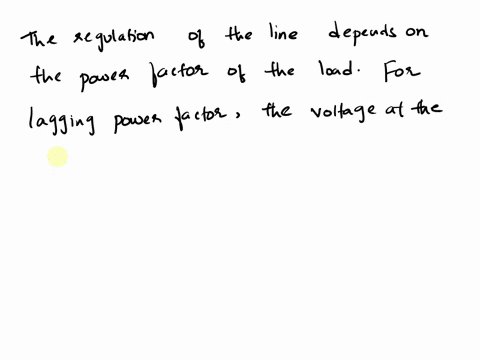 The regulation of the line depends on
the power factor of the load. For
lagging power factor, the voltage at the